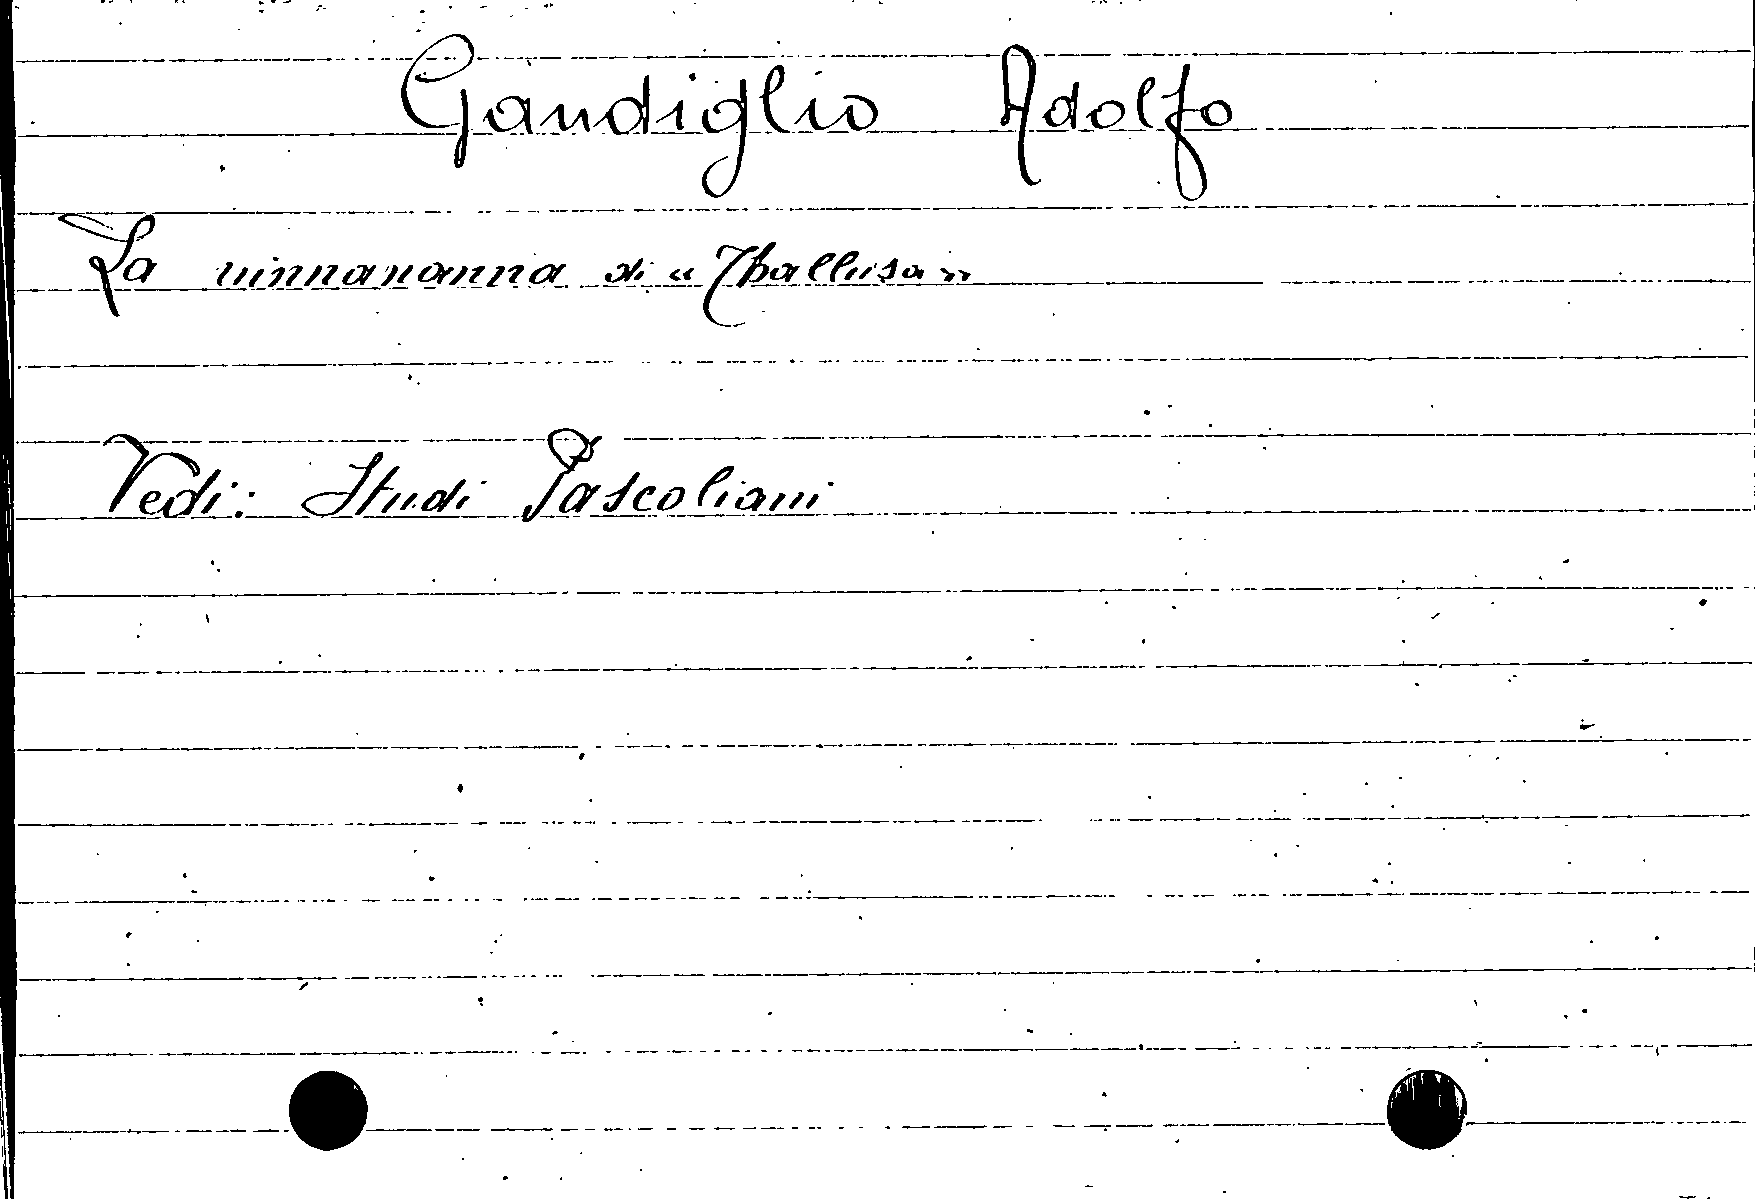 Gandiglio Adolfo
La ninnananna di « Thallusa »
Vedi: Studi Pascoliani